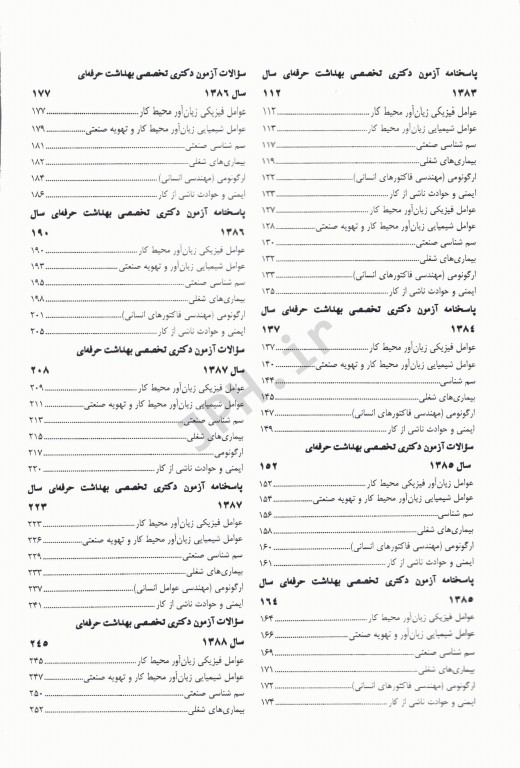 پاسخنامه آزمون دکتری تخصصی بهداشت حرفه‌ای سال
۱۳۸۳ ۱۱۲
عوامل فیزیکی زیان‌آور محیط کار ۱۱۲
عوامل شیمیایی زیان‌آور محیط کار ۱۱۳
سم شناسی صنعتی ۱۱۷
بیماری‌های شغلی ۱۱۹
ارگونومی (مهندسی فاکتورهای انسانی) ۱۲۲
ایمنی و حوادث ناشی از کار ۱۲۳
عوامل فیزیکی زیان‌آور محیط کار ۱۲۷
عوامل شیمیایی زیان‌آور محیط کار و تهویه صنعتی ۱۲۸
سم شناسی صنعتی ۱۳۰
بیماری‌های شغلی ۱۳۲
ارگونومی (مهندسی فاکتورهای انسانی) ۱۳۳
ایمنی و حوادث ناشی از کار ۱۳۵
پاسخنامه آزمون دکتری تخصصی بهداشت حرفه‌ای سال
۱۳۸۴ ۱۳۷
عوامل فیزیکی زیان‌آور محیط کار ۱۳۷
عوامل شیمیایی زیان‌آور محیط کار و تهویه صنعتی ۱۴۰
سم شناسی ۱۴۴
بیماری‌های شغلی ۱۴۵
ارگونومی (مهندسی فاکتورهای انسانی) ۱۴۷
ایمنی و حوادث ناشی از کار ۱۴۹
سؤالات آزمون دکتری تخصصی بهداشت حرفه‌ای
سال ۱۳۸۵ ۱۵۲
عوامل زیان‌آور فیزیکی محیط کار ۱۵۲
عوامل شیمیایی زیان‌آور محیط کار و تهویه صنعتی ۱۵۴
سم شناسی ۱۵۶
بیماری‌های شغلی ۱۵۸
ارگونومی (مهندسی فاکتورهای انسانی) ۱۶۰
ایمنی و حوادث ناشی از کار ۱۶۱
پاسخنامه آزمون دکتری تخصصی بهداشت حرفه‌ای سال
۱۳۸۵ ۱۶۴
عوامل فیزیکی زیان‌آور محیط کار ۱۶۴
عوامل شیمیایی زیان‌آور و تهویه صنعتی ۱۶۶
سم شناسی صنعتی ۱۶۹
بیماری‌های شغلی ۱۷۱
ارگونومی (مهندسی فاکتورهای انسانی) ۱۷۲
ایمنی و حوادث ناشی از کار ۱۷۴
سؤالات آزمون دکتری تخصصی بهداشت حرفه‌ای
سال ۱۳۸۶ ۱۷۷
عوامل فیزیکی زیان‌آور محیط کار ۱۷۷
عوامل شیمیایی زیان‌آور محیط کار و تهویه صنعتی ۱۷۹
سم شناسی صنعتی ۱۸۱
بیماری‌های شغلی ۱۸۲
ارگونومی (مهندسی انسانی) ۱۸۴
ایمنی و حوادث ناشی از کار ۱۸۶
پاسخنامه آزمون دکتری تخصصی بهداشت حرفه‌ای سال
۱۳۸۶ ۱۹۰
عوامل فیزیکی زیان‌آور محیط کار ۱۹۰
عوامل شیمیایی زیان‌آور محیط کار و تهویه صنعتی ۱۹۳
سم شناسی صنعتی ۱۹۵
بیماری‌های شغلی ۱۹۸
ارگونومی (مهندسی فاکتورهای انسانی) ۲۰۱
ایمنی و حوادث ناشی از کار ۲۰۵
سؤالات آزمون دکتری تخصصی بهداشت حرفه‌ای
سال ۱۳۸۷ ۲۰۸
عوامل فیزیکی زیان‌آور محیط کار ۲۰۹
عوامل شیمیایی زیان‌آور محیط کار و تهویه صنعتی ۲۱۱
سم شناسی صنعتی ۲۱۳
بیماری‌های شغلی ۲۱۵
ارگونومی ۲۱۷
ایمنی و حوادث ناشی از کار ۲۲۰
پاسخنامه آزمون دکتری تخصصی بهداشت حرفه‌ای سال
۱۳۸۷ ۲۲۳
عوامل فیزیکی زیان‌آور محیط کار ۲۲۳
عوامل شیمیایی زیان‌آور محیط کار و تهویه صنعتی ۲۲۶
سم شناسی صنعتی ۲۲۹
بیماری‌های شغلی ۲۳۳
ارگونومی (مهندسی عوامل انسانی) ۲۳۷
ایمنی و حوادث ناشی از کار ۲۴۱
سؤالات آزمون دکتری تخصصی بهداشت حرفه‌ای
سال ۱۳۸۸ ۲۴۵
عوامل فیزیکی زیان‌آور محیط کار ۲۴۵
عوامل شیمیایی زیان‌آور محیط کار و تهویه صنعتی ۲۴۷
سم شناسی صنعتی ۲۵۰
بیماری‌های شغلی ۲۵۲
JPH.ir